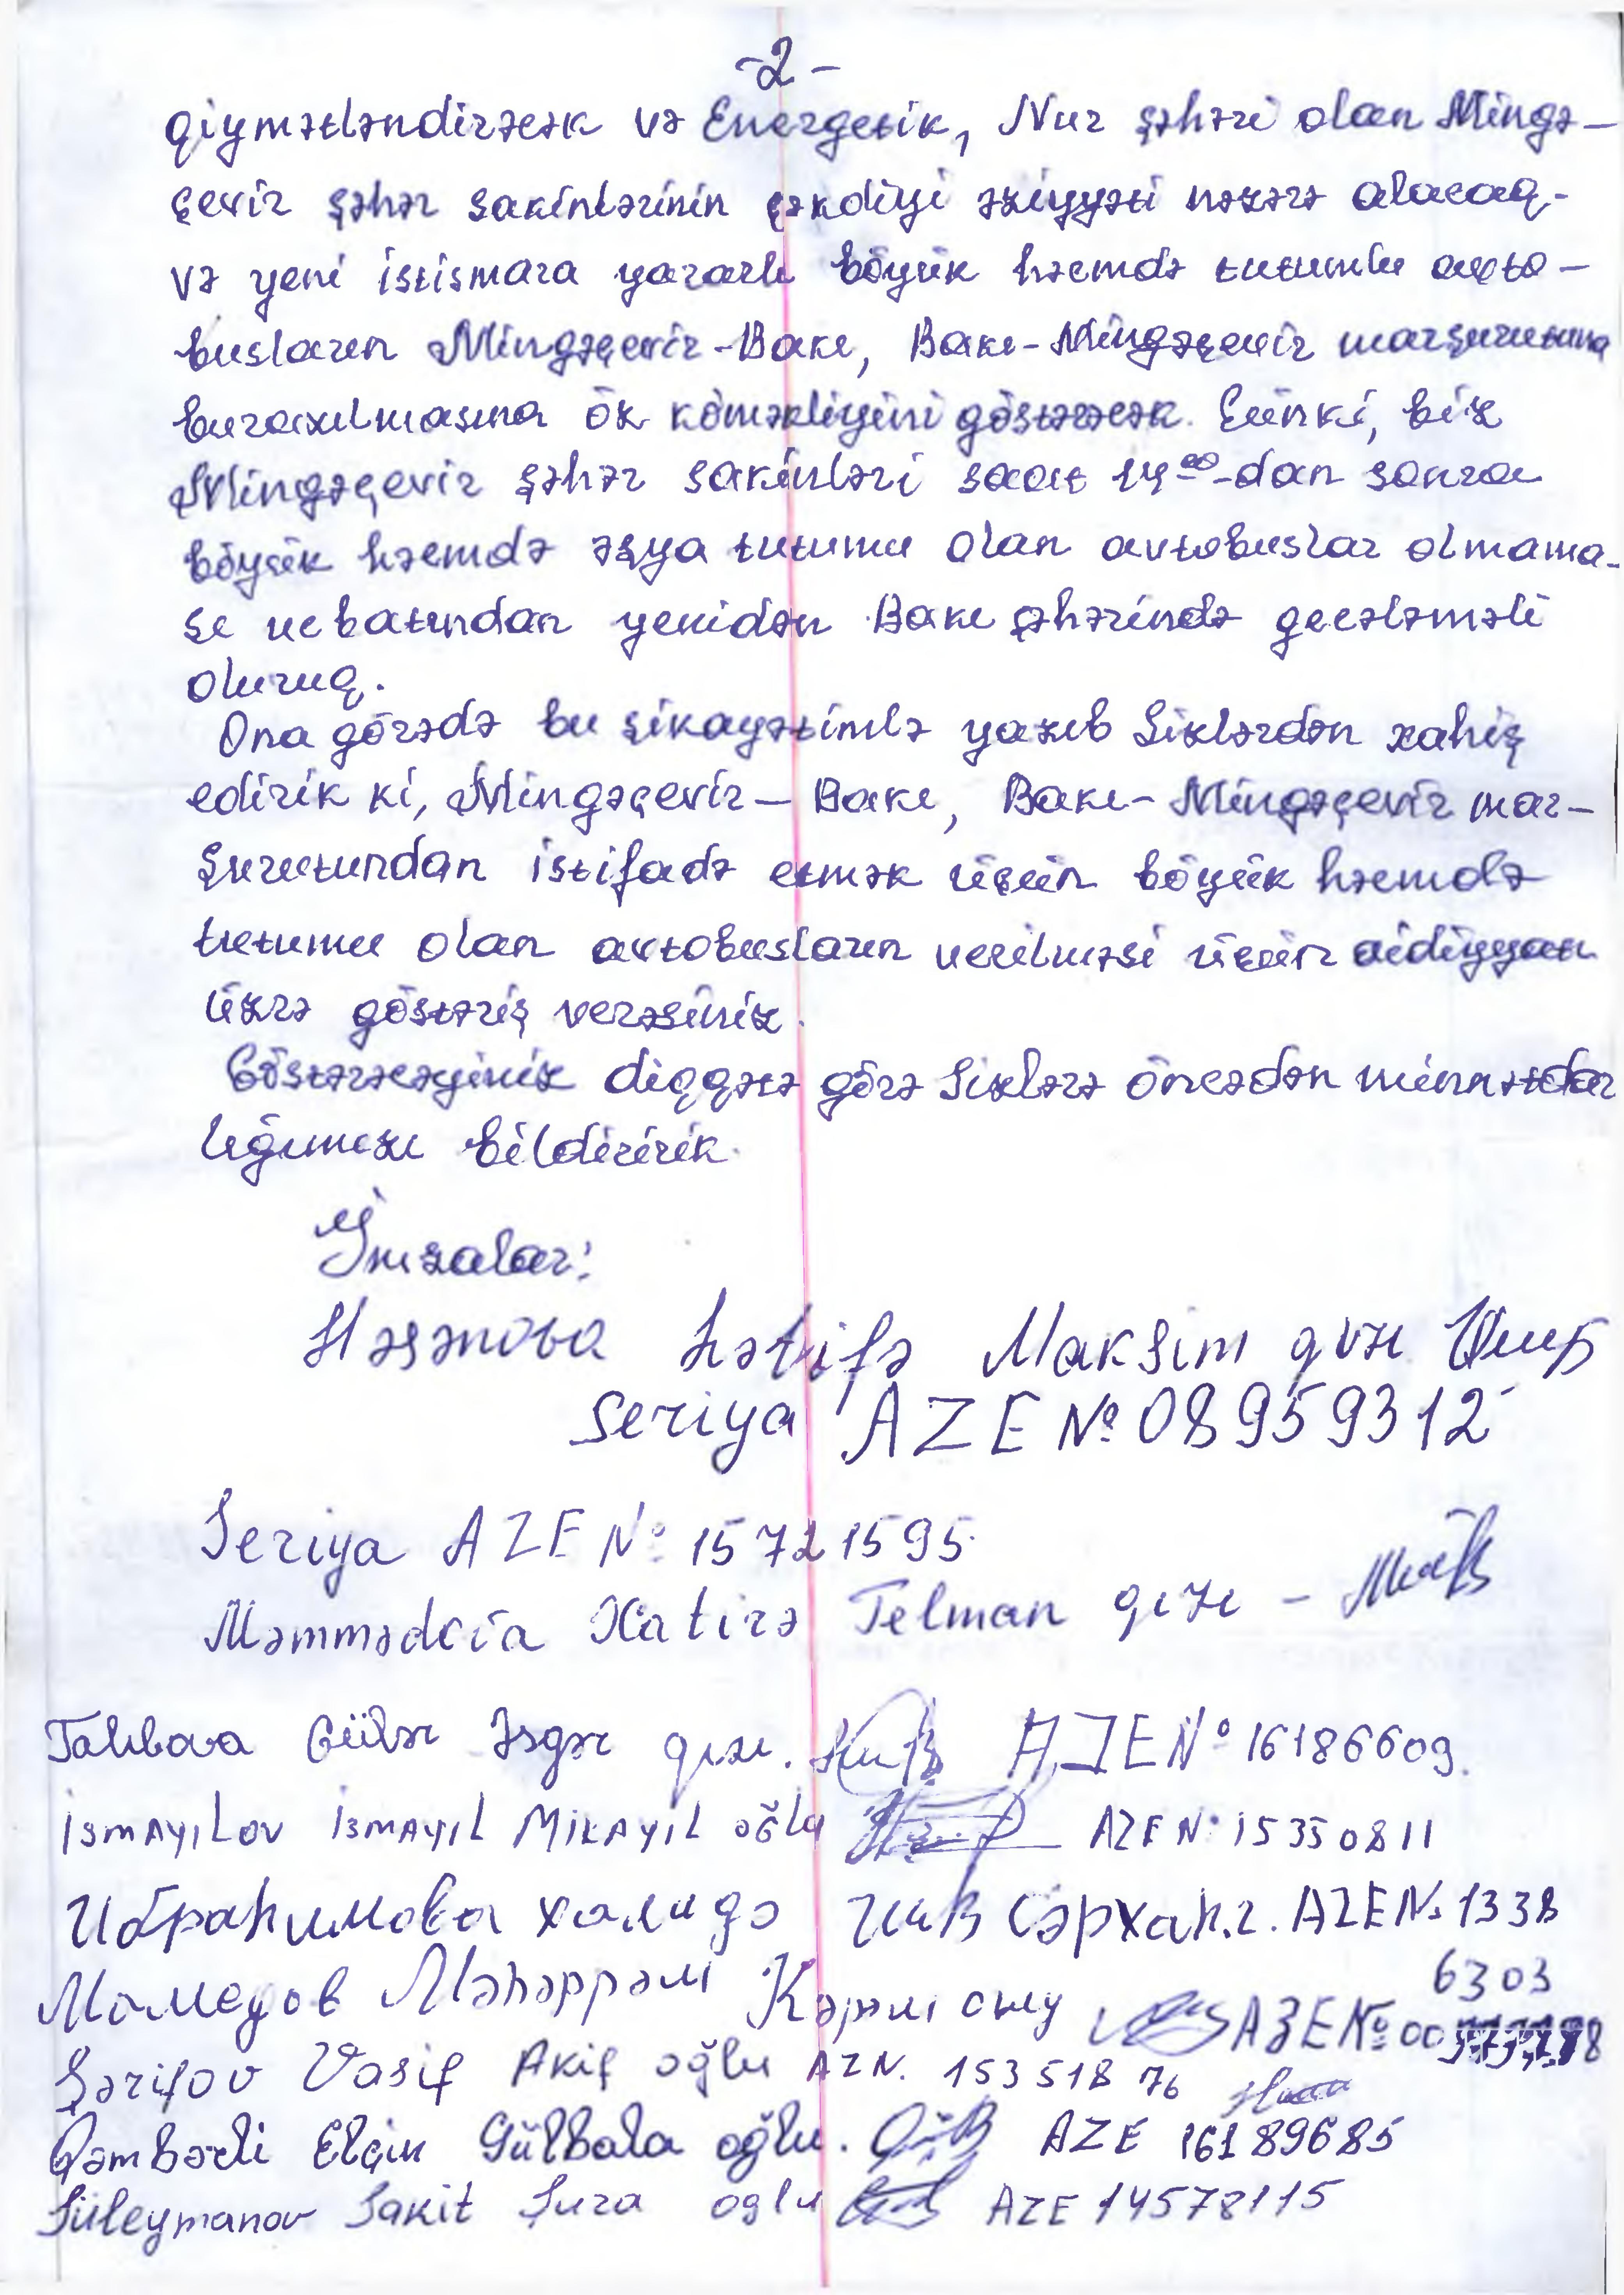 -2-
qiymətləndirəcək və Energetik, Nur şəhəri olan Mingə-
çevir şəhər sakinlərinin çəkdiyi əziyyəti nəzərə alacaq-
və yeni istismara yararlı böyük həcmdə tutumlu avto-
busların Mingəçevir-Bakı, Bakı-Mingəçevir marşurutuna
buraxılmasına öz köməkliyini göstərəcək. Çünki, biz
Mingəçevir şəhər sakinləri saat 14⁰⁰-dan sonra
böyük həcmdə əşya tutumu olan avtobuslar olmama-
sı ucbatından yenidən Bakı şəhərində gecələməli
oluruq.
Ona görədə bu şikayətimlə yazıb Sizlərdən xahiş
edirik ki, Mingəçevir-Bakı, Bakı-Mingəçevir mar-
şurutundan istifadə etmək üçün böyük həcmdə
tutumu olan avtobusların verilməsi üçün aidiyyatı
üzrə göstəriş verəsiniz.
Göstərəcəyiniz diqqətə görə Sizlərə öncədən minnətdar
lığımızı bildiririk.
İmzalar:
Həşənova Lətifə Maksim qızı
Seriya AZE № 08959312
Seriya AZE № 15721595
Məmmədova Xatirə Telman qızı -
Talıbova Gülər Əsgər qızı. AZE № 16186609.
İsmayılov İsmayıl Mikayıl oğlu AZE № 15350811
Ибраһимова халидə Сəрхаһ.г. AZE №. 1338
6303
Мамедов Мəһəррəм Кəрəм оғлу AZE № 00
Şərifov Vasif Akif oğlu AZN. 15351876
Qəmbərli Elçin Gülbala oğlu. AZE 16189685
Süleymanov Sakit Şura oglu AZE 14578115